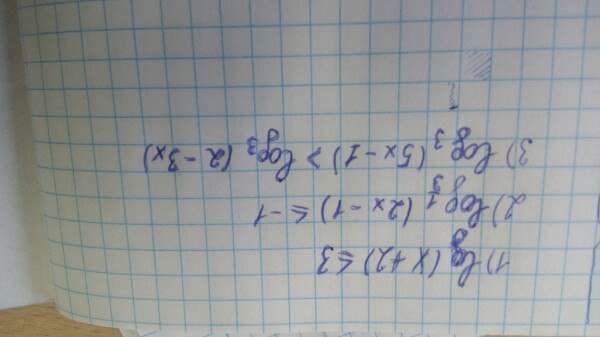 1) log (x+2) ≤ 3
2) log 1/3 (2x-1) ≤ -1
3) log₃ (5x-1) > log₃ (2-3x)